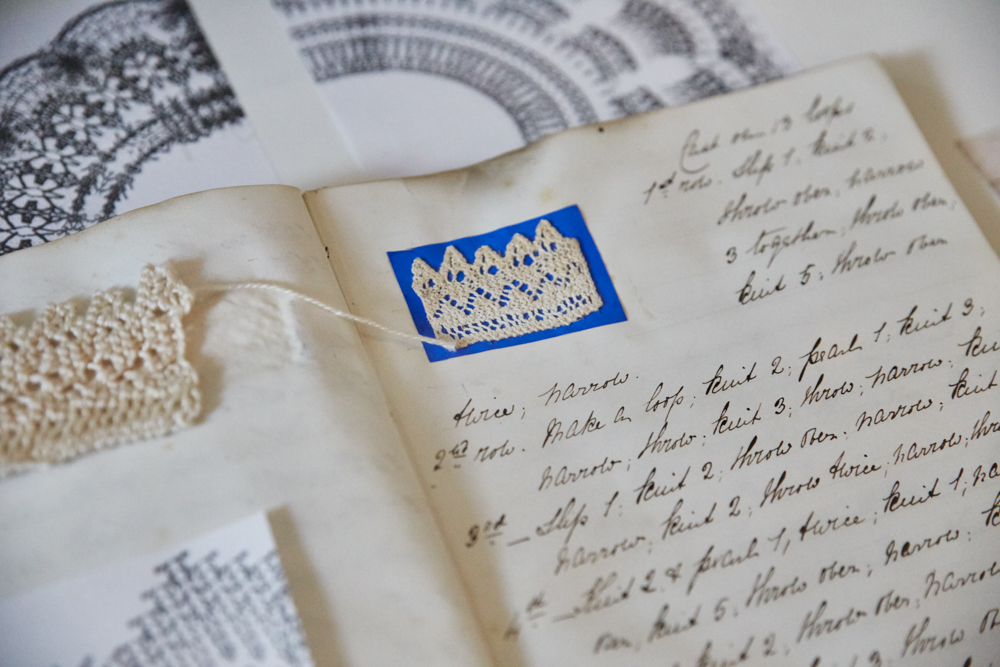 Cast on 13 loops
1st row. Slip 1, knit 2,
throw over, narrow
3 together, throw over,
knit 5; throw over
twice; narrow.
2nd row. Make a loop; knit 2; pearl 1; knit 3;
narrow; throw; knit 3; throw; narrow; knit
3rd — Slip 1; knit 2; throw over; narrow; knit
narrow; knit 2; throw twice; narrow; thro
4th — knit 2 & pearl 1, twice; knit 1; na
over, knit 5; throw over; narrow;
knit 2, throw over, narrow
3, throw over